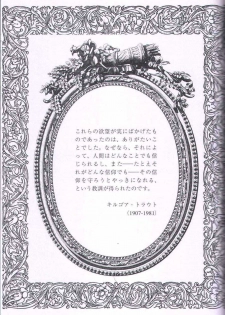 これらの欲望が実にばかげたも
のであったのは、ありがたいこ
とでした。なぜなら、それによ
って、人間はどんなことでも信
じられるし、また――たとえそ
れがどんな信仰でも――その信
仰を守ろうとやっきになれる、
という教訓が得られたのです。
キルゴア・トラウト
(1907-1981)